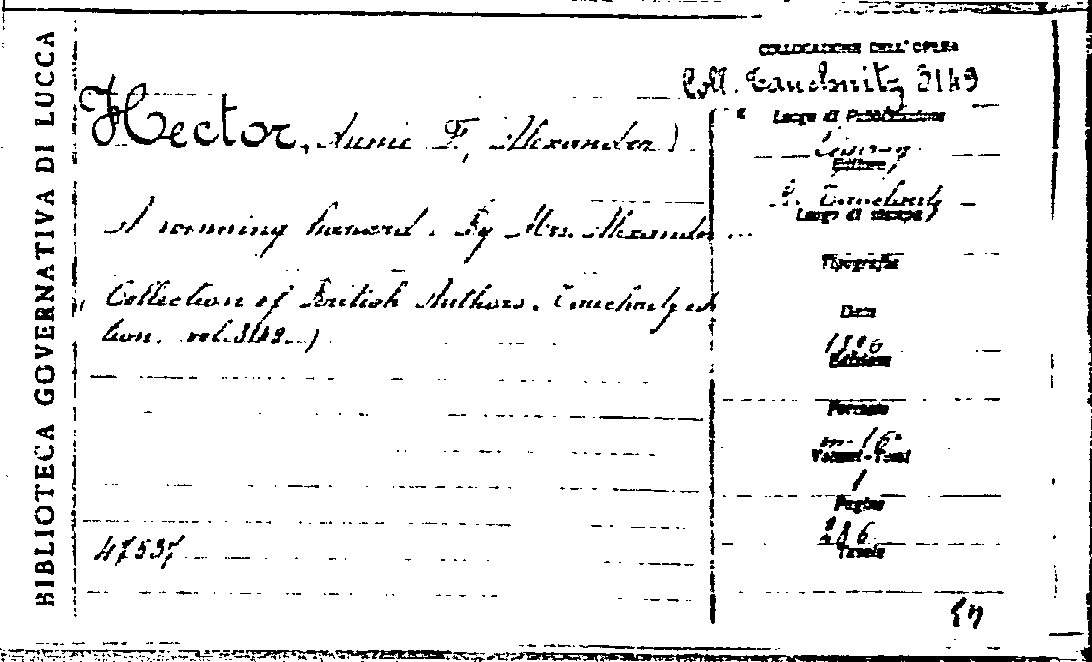 BIBLIOTECA GOVERNATIVA DI LUCCA
COLLOCAZIONE DELL'OPERA
Coll. Tauchnitz 3149
Hector, Annie F, Alexander)
Luogo di Pubblicazione
Editore
Luogo di stampa
A winning hazard. By Mrs. Alexander...
Tipografia
Collection of British Authors. Tauchnitz edi
tion. vol. 3149.)
Data
1896
Edizione
Formato
in-16°
Volumi-Tomi
1
Pagine
286
Tavole
47537